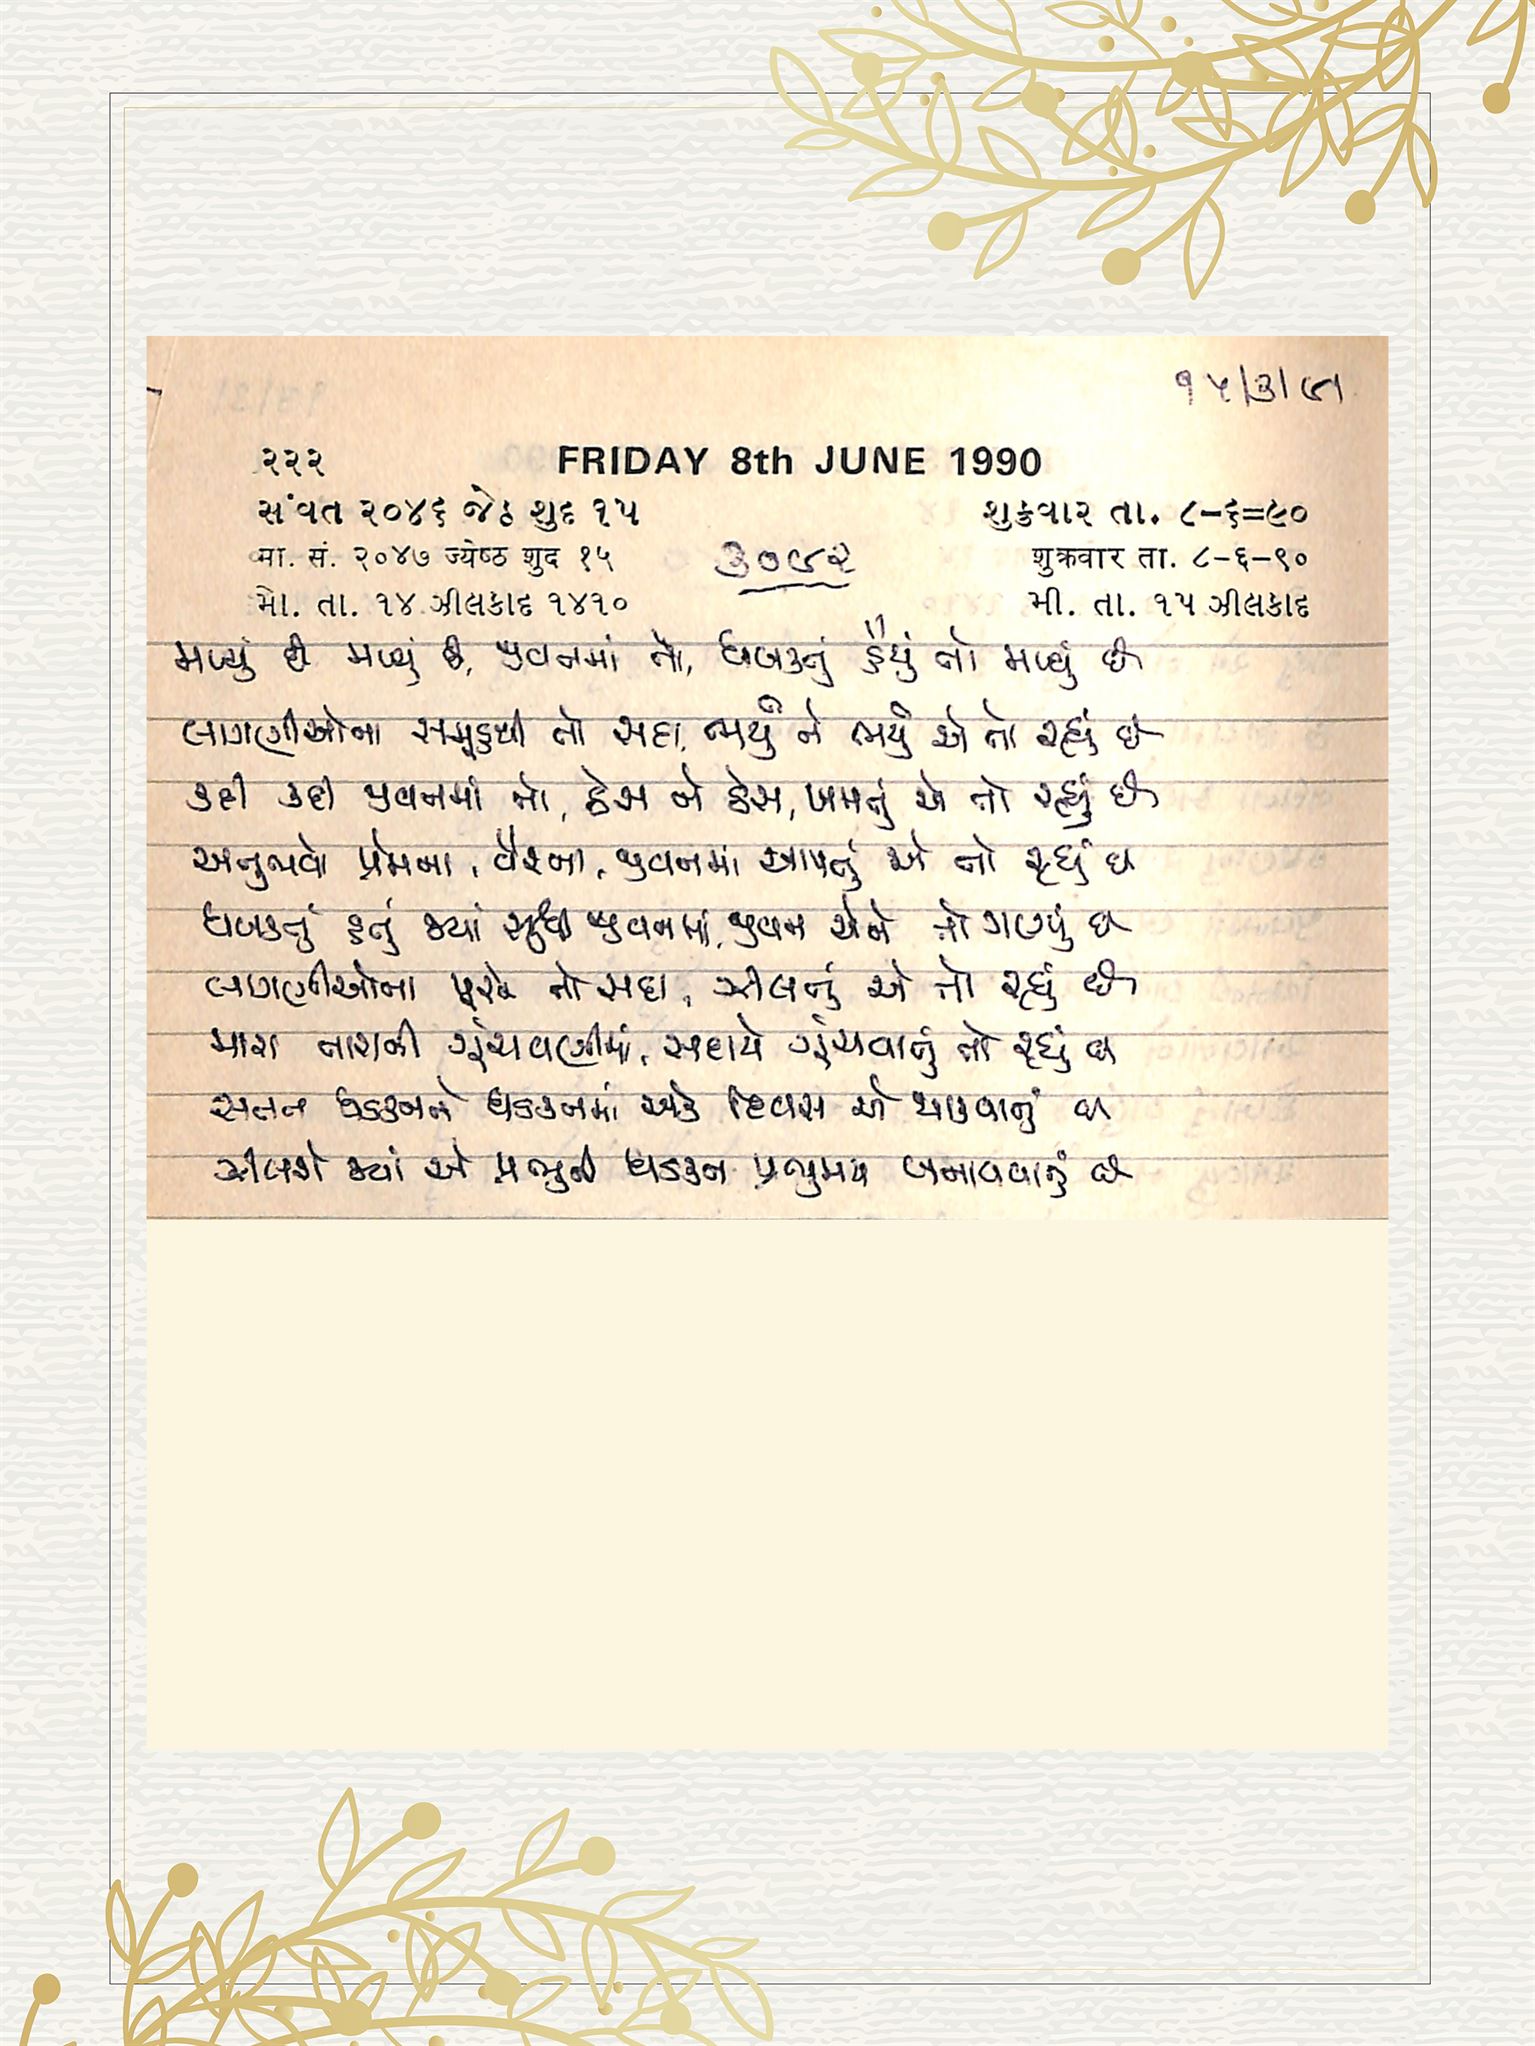 ૧૫/૩/૯૧
૨૨૨ FRIDAY 8th JUNE 1990
સંવત ૨૦૪૬ જેઠ શુદ ૧૫ શુક્રવાર તા. ૮-૬=૯૦
मा. सं. २०४७ ज्येष्ठ शुद १५ शुक्रवार ता. ८-६-९०
મો. તા. ૧૪ ઝીલકાદ ૧૪૧૦ મી. તા. ૧૫ ઝીલકાદ
૩૦૯૨
મળ્યું છે મળ્યું છે, જીવનમાં તો, ધબકતું હૈયું તો મળ્યું છે
લાગણીઓના સમૂહથી તો સદા, ભર્યું ને ભર્યું એ તો રહ્યું છે
કદી કદી જીવનમાં તો, ઠેસ ને ઠેસ, ખમતું એ તો રહ્યું છે
અનુભવો પ્રેમના, વૈરના, જીવનમાં આપતું એ તો રહ્યું છે
ધબકતું હતું જ્યાં સુધી જીવનમાં, જીવન એને તો ગણ્યું છે
લાગણીઓના પૂરો તો સદા, ઝીલતું એ તો રહ્યું છે
મારા તારાની ગૂંચવણીમાં, સદાયે ગૂંચવાતું તો રહ્યું છે
સતત ધડકનને ધડકનમાં એક દિવસ એ થાકવાનું છે
ઝીલશે જ્યાં એ પ્રભુની ધડકન પ્રભુમય બનાવવાનું છે